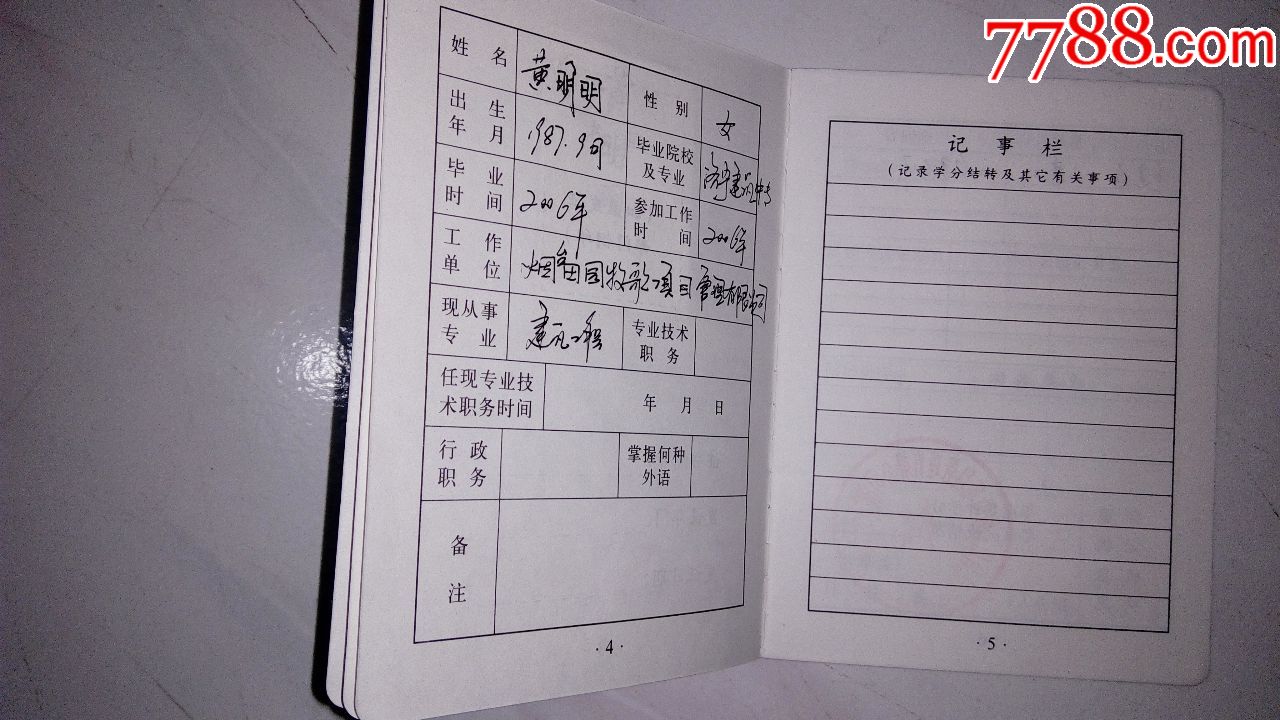 7788.com
姓 名 黄明明 性 别 女
出 生 年 月 1987.9月 毕业院校及专业 建筑中专
毕 业 时 间 2006年 参加工作时 间 2006年
工 作 单 位 烟台田园牧歌项目管理有限公司
现从事专 业 建筑工程 专业技术职 务
任现专业技术职务时间 年 月 日
行 政 职 务 掌握何种外语
备 注
·4·
记 事 栏
(记录学分结转及其它有关事项)
·5·